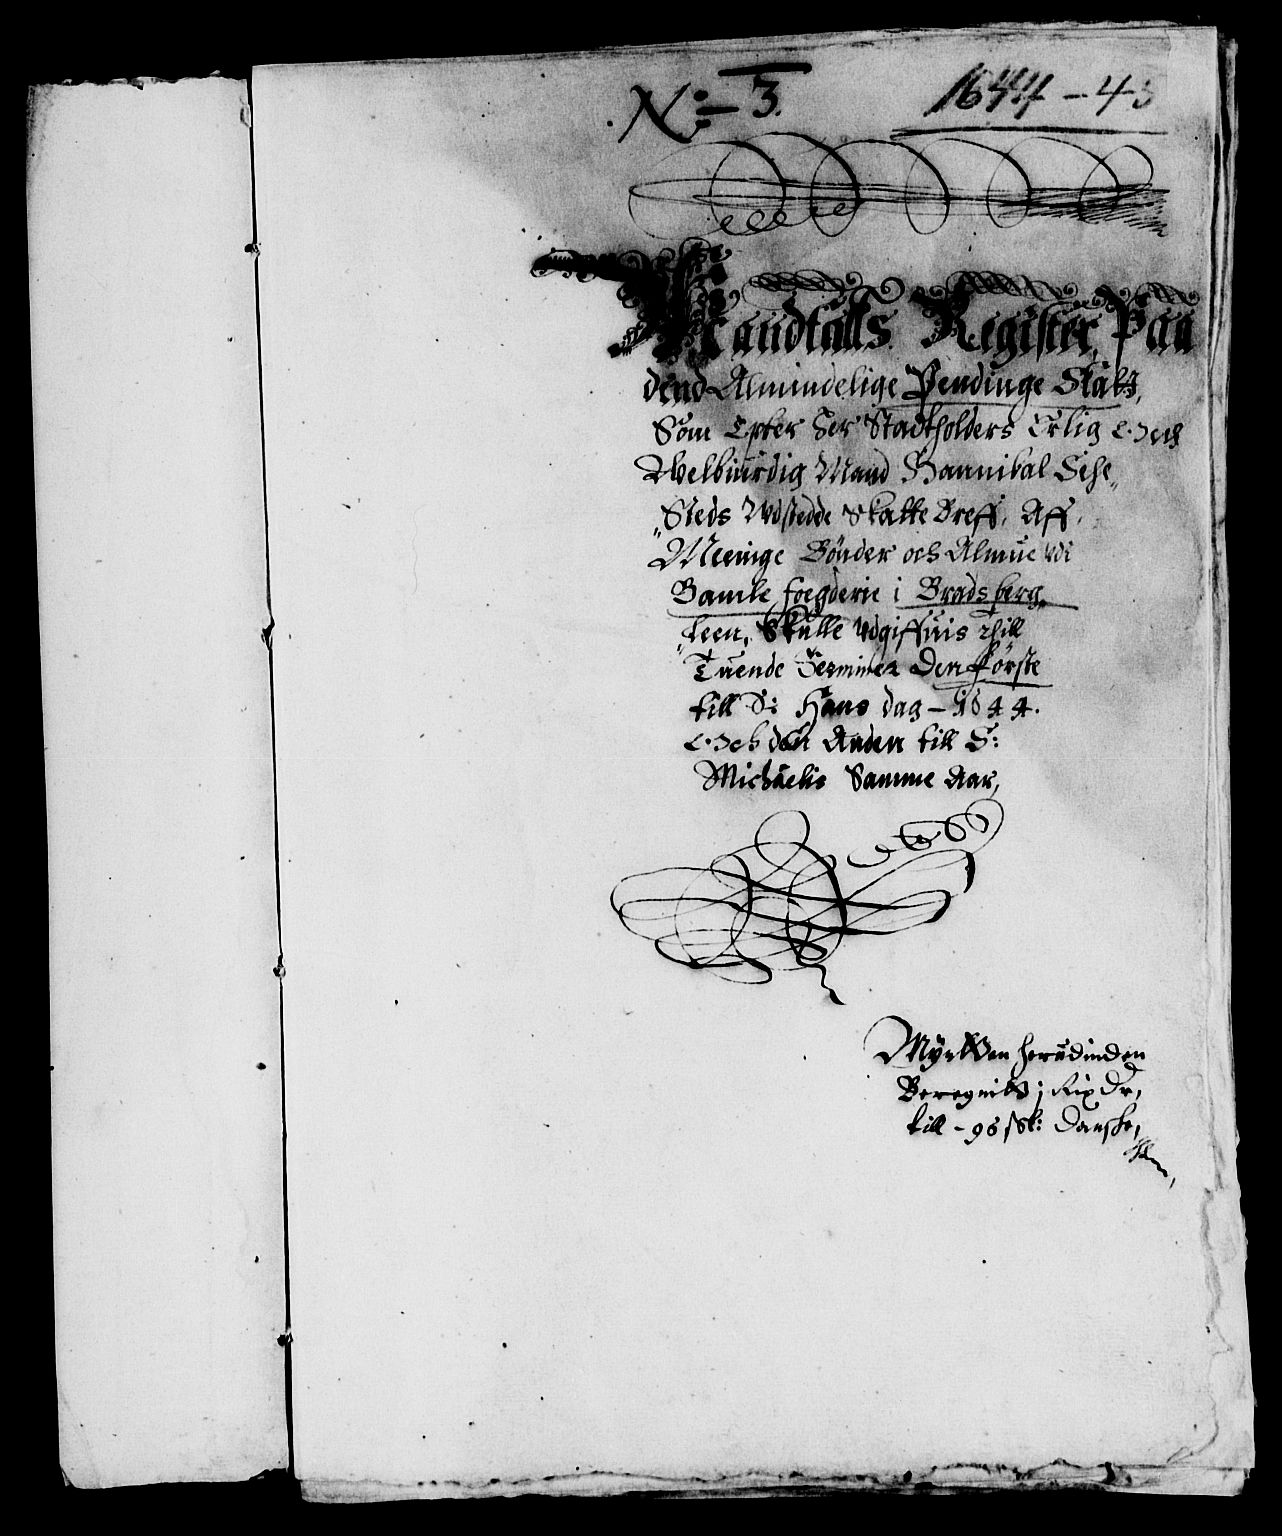 N: 3.
1644 - 45
Mandtalls Register, Paa
dend Almindelige Pendinge Skatt,
Som Epter Her Stadtholders Erlig och
Welbiurdig Mand Hannibal Sehe„
„Steds Udstedde Skatte Breff, Aff
Meenige Bönder och Almue udi
Bamle foegderie i Bradsberg„
„leen, Skulle udgiffuis thill
Tuende Terminer Den Förste
till S: Hans dag - 1644.
Och den Anden till S:
Michaelis Samme Aar,
Myndten herudinden
Beregnidt j Rix Dr,
till - 96 sk: Danske,